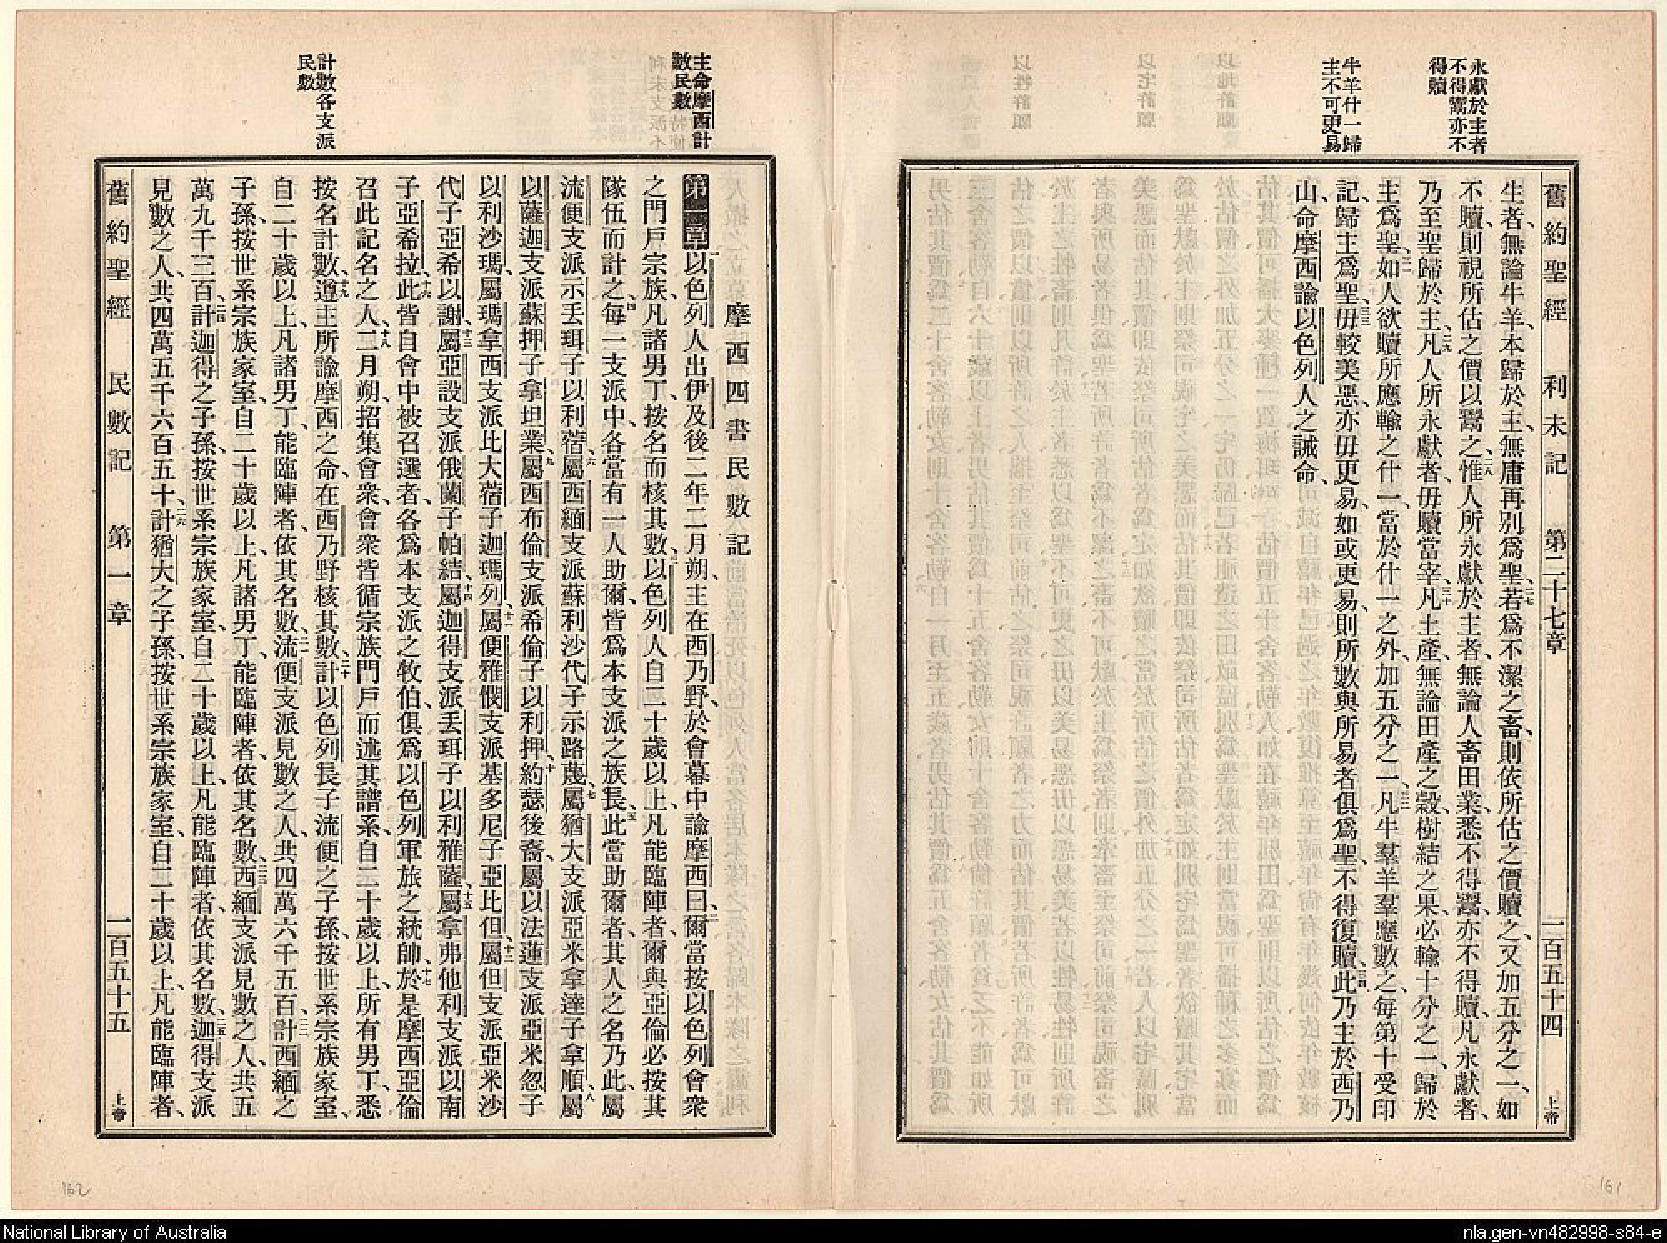 舊約聖經 利未記 第二十七章 一百五十四 上帝
永獻於主者
不得鬻亦不
得贖
牛羊什一歸
主不可更易
生者、無論牛羊、本歸於主、無庸再別爲聖、二七若爲不潔之畜、則依所估之價贖之、又加五分之一、如
不贖、則視所估之價以鬻之、二八惟人所永獻於主者、無論人畜田業、悉不得鬻、亦不得贖、凡永獻者、
乃至聖歸於主、二九凡人所永獻者、毋贖、當宰、三十凡土產、無論田產之穀、樹結之果、必輸十分之一、歸於
主爲聖、三一如人欲贖所應輸之什一、當於什一之外、加五分之一、三二凡牛羣羊羣、應數之、每第十受印
記、歸主爲聖、三三毋較美惡、亦毋更易、如或更易、則所數與所易者、俱爲聖、不得復贖、三四此乃主於西乃
山、命摩西諭以色列人之誡命、
主命摩西計
數民數
計數各支派
民數
摩西四書民數記
第一章 一以色列人出伊及後二年二月朔、主在西乃野、於會幕中諭摩西曰、二爾當按以色列會衆
之門戶宗族、凡諸男丁、按名而核其數、三以色列人自二十歲以上、凡能臨陣者、爾與亞倫必按其
隊伍而計之、四每一支派中、各當有一人助爾、皆爲本支派之族長、五此當助爾者、其人之名乃此、屬
流便支派示丟珥子以利蓿、六屬西緬支派蘇利沙代子示路蔑、七屬猶大支派亞米拿達子拿順、八屬
以薩迦支派蘇押子拿坦業、九屬西布倫支派希倫子以利押、十約瑟後裔、屬以法蓮支派亞米忽子
以利沙瑪、屬瑪拿西支派比大蓿子迦瑪列、十一屬便雅憫支派基多尼子亞比但、十二屬但支派亞米沙
代子亞希以謝、十三屬亞設支派俄蘭子帕結、十四屬迦得支派丟珥子以利雅薩、十五屬拿弗他利支派以南
子亞希拉、十六此皆自會中被召選者、各爲本支派之牧伯、俱爲以色列軍旅之統帥、十七於是摩西亞倫
召此記名之人、十八二月朔、招集會衆、會衆皆循宗族門戶而述其譜系、自二十歲以上、所有男丁、悉
按名計數、十九遵主所諭摩西之命、在西乃野核其數、二十計以色列長子流便之子孫、按世系宗族家室、
自二十歲以上、凡諸男丁、能臨陣者、依其名數、二一流便支派見數之人、共四萬六千五百、二二計西緬之
子孫、按世系宗族家室、自二十歲以上、凡諸男丁、能臨陣者、依其名數、二三西緬支派見數之人、共五
萬九千三百、二四計迦得之子孫、按世系宗族家室、自二十歲以上、凡能臨陣者、依其名數、二五迦得支派
見數之人、共四萬五千六百五十、二六計猶大之子孫、按世系宗族家室、自二十歲以上、凡能臨陣者、
舊約聖經 民數記 第一章 一百五十五 上帝
162
161
National Library of Australia
nla.gen-vn482998-s84-e